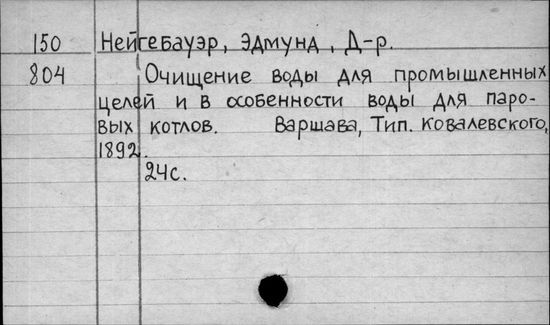 150 Нейгебауэр, Эдмунд, Д-р.
804 Очищение воды для промышленных
целей и в особенности воды для паро-
вых котлов. Варшава, Тип. Ковалевского,
1892.
24с.